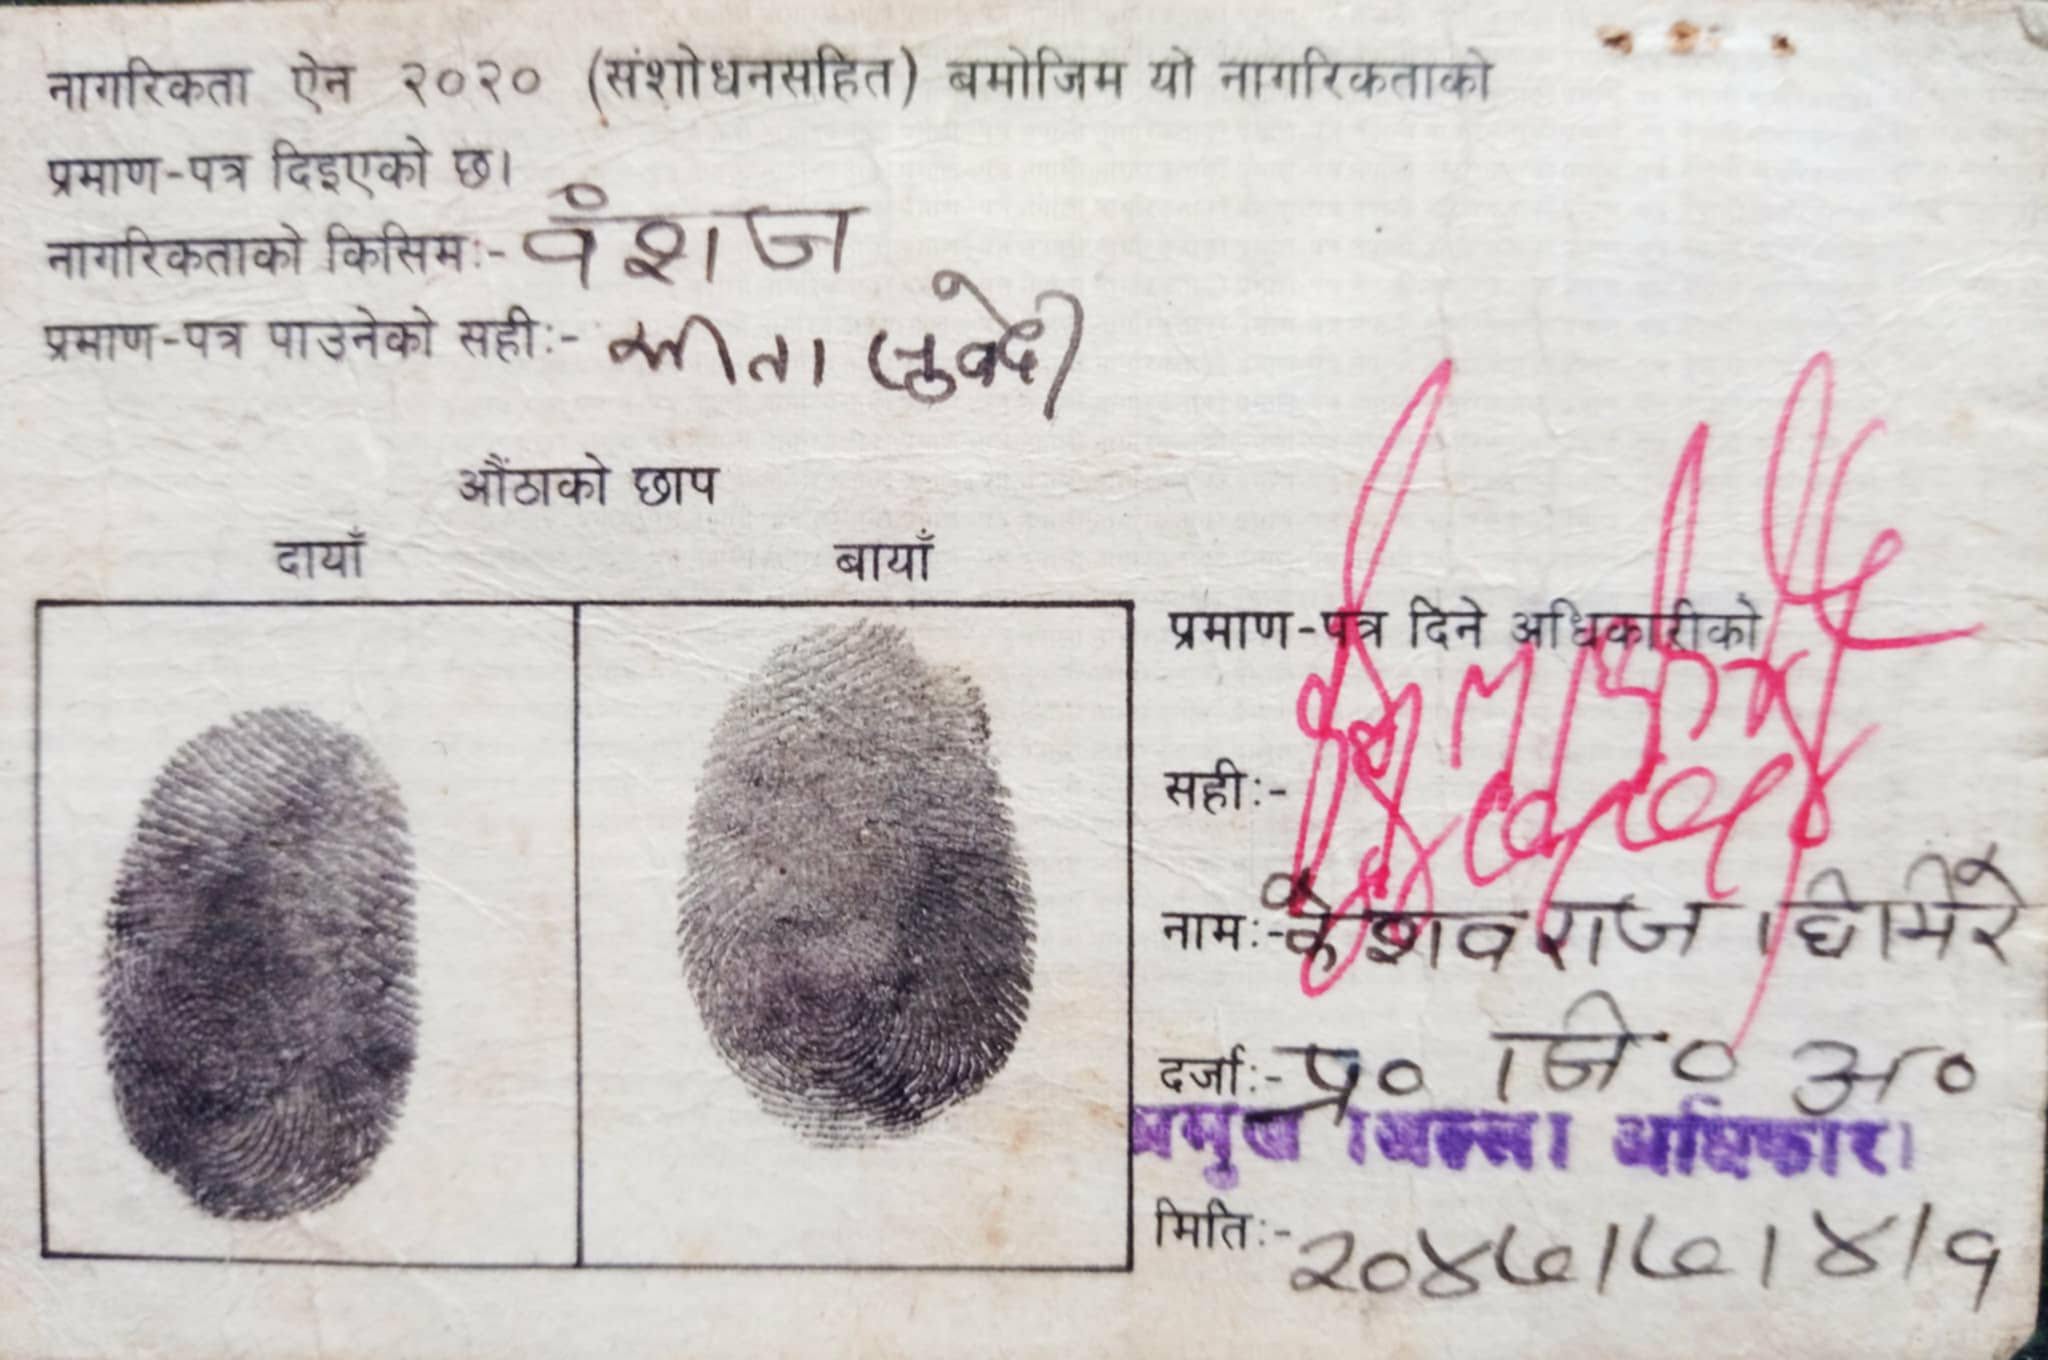 नागरिकता ऐन २०२० (संशोधनसहित) बमोजिम यो नागरिकताको
प्रमाण-पत्र दिइएको छ।
नागरिकताको किसिम:- वंशज
प्रमाण-पत्र पाउनेको सही:-
औंठाको छाप
दायाँ बायाँ
प्रमाण-पत्र दिने अधिकारीको
सही:-
नाम:- केशवराज घिमिरे
दर्जा:- प्र० जि० अ०
प्रमुख जिल्ला अधिकारी
मिति:-